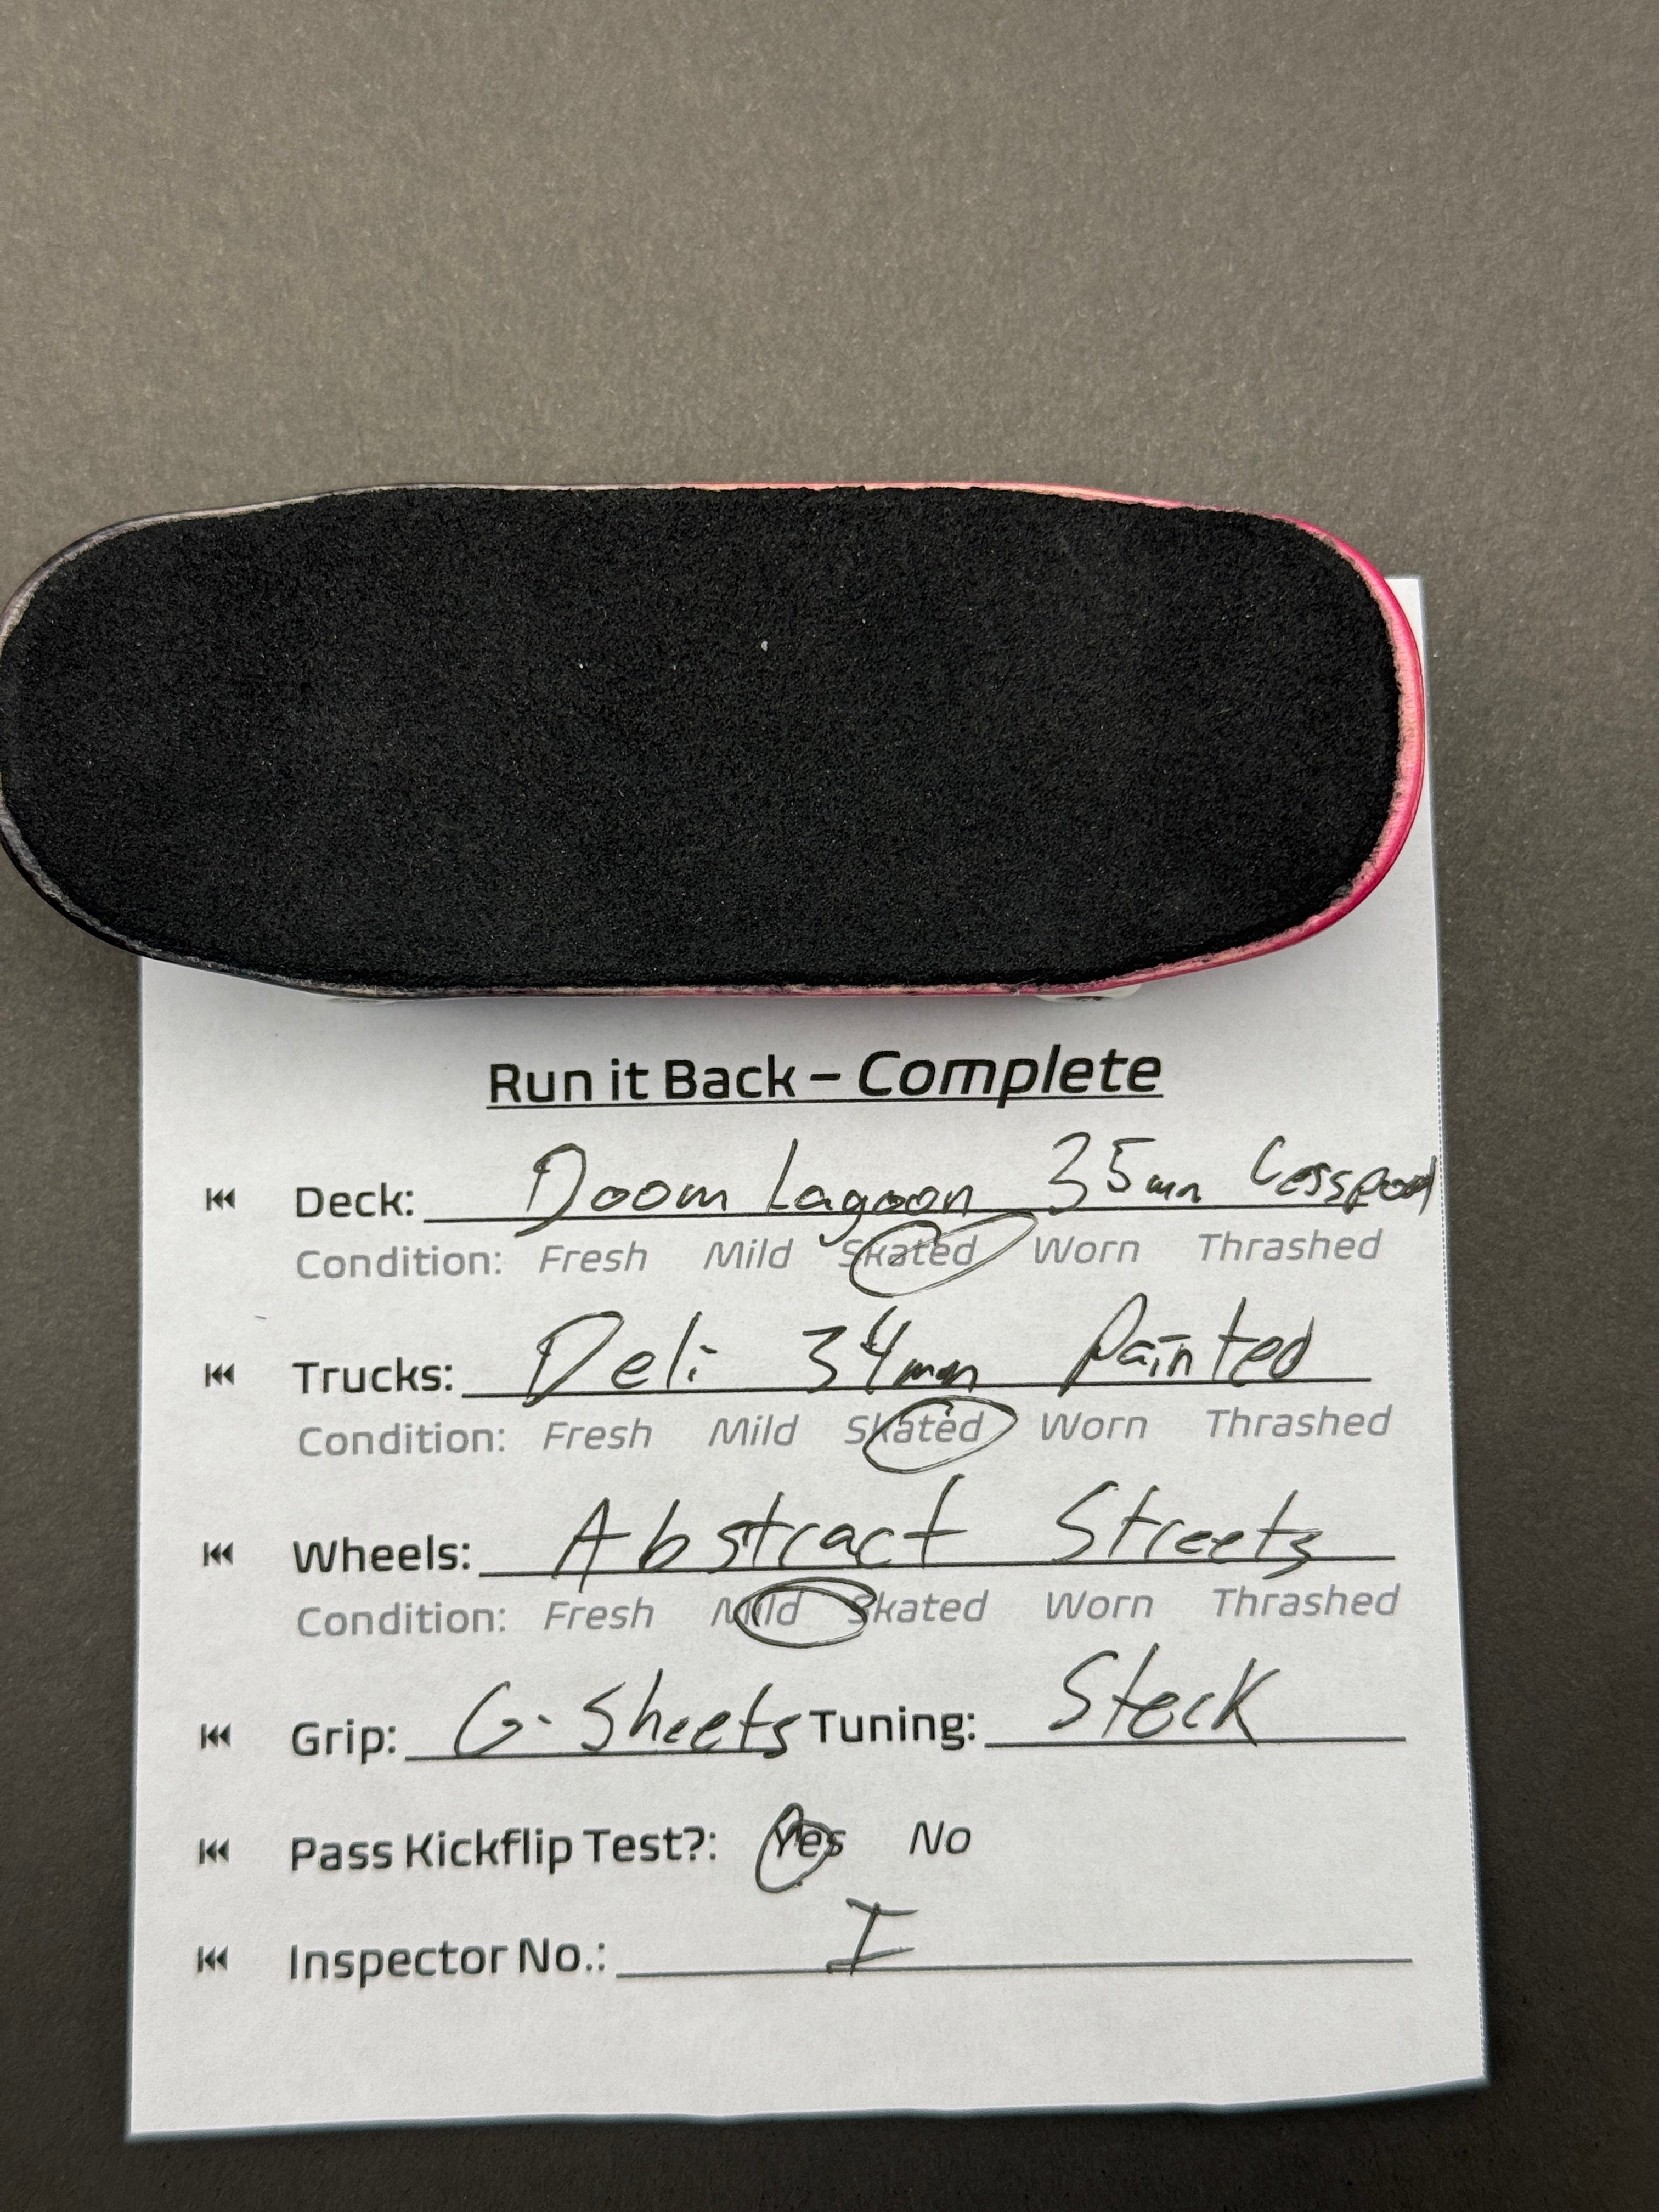 Run it Back – Complete
Deck: Doom Lagoon 35mm Cesspool
Condition: Fresh Mild Skated Worn Thrashed
Trucks: Deli 34mm Painted
Condition: Fresh Mild Skated Worn Thrashed
Wheels: Abstract Streets
Condition: Fresh Mild Skated Worn Thrashed
Grip: G-Sheets Tuning: Stock
Pass Kickflip Test?: Yes No
Inspector No.: I